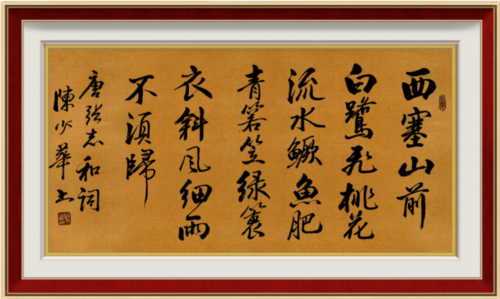 西塞山前
白鷺飛桃花
流水鱖魚肥
青箬笠綠蓑
衣斜風細雨
不須歸
唐張志和詞
陳少華書